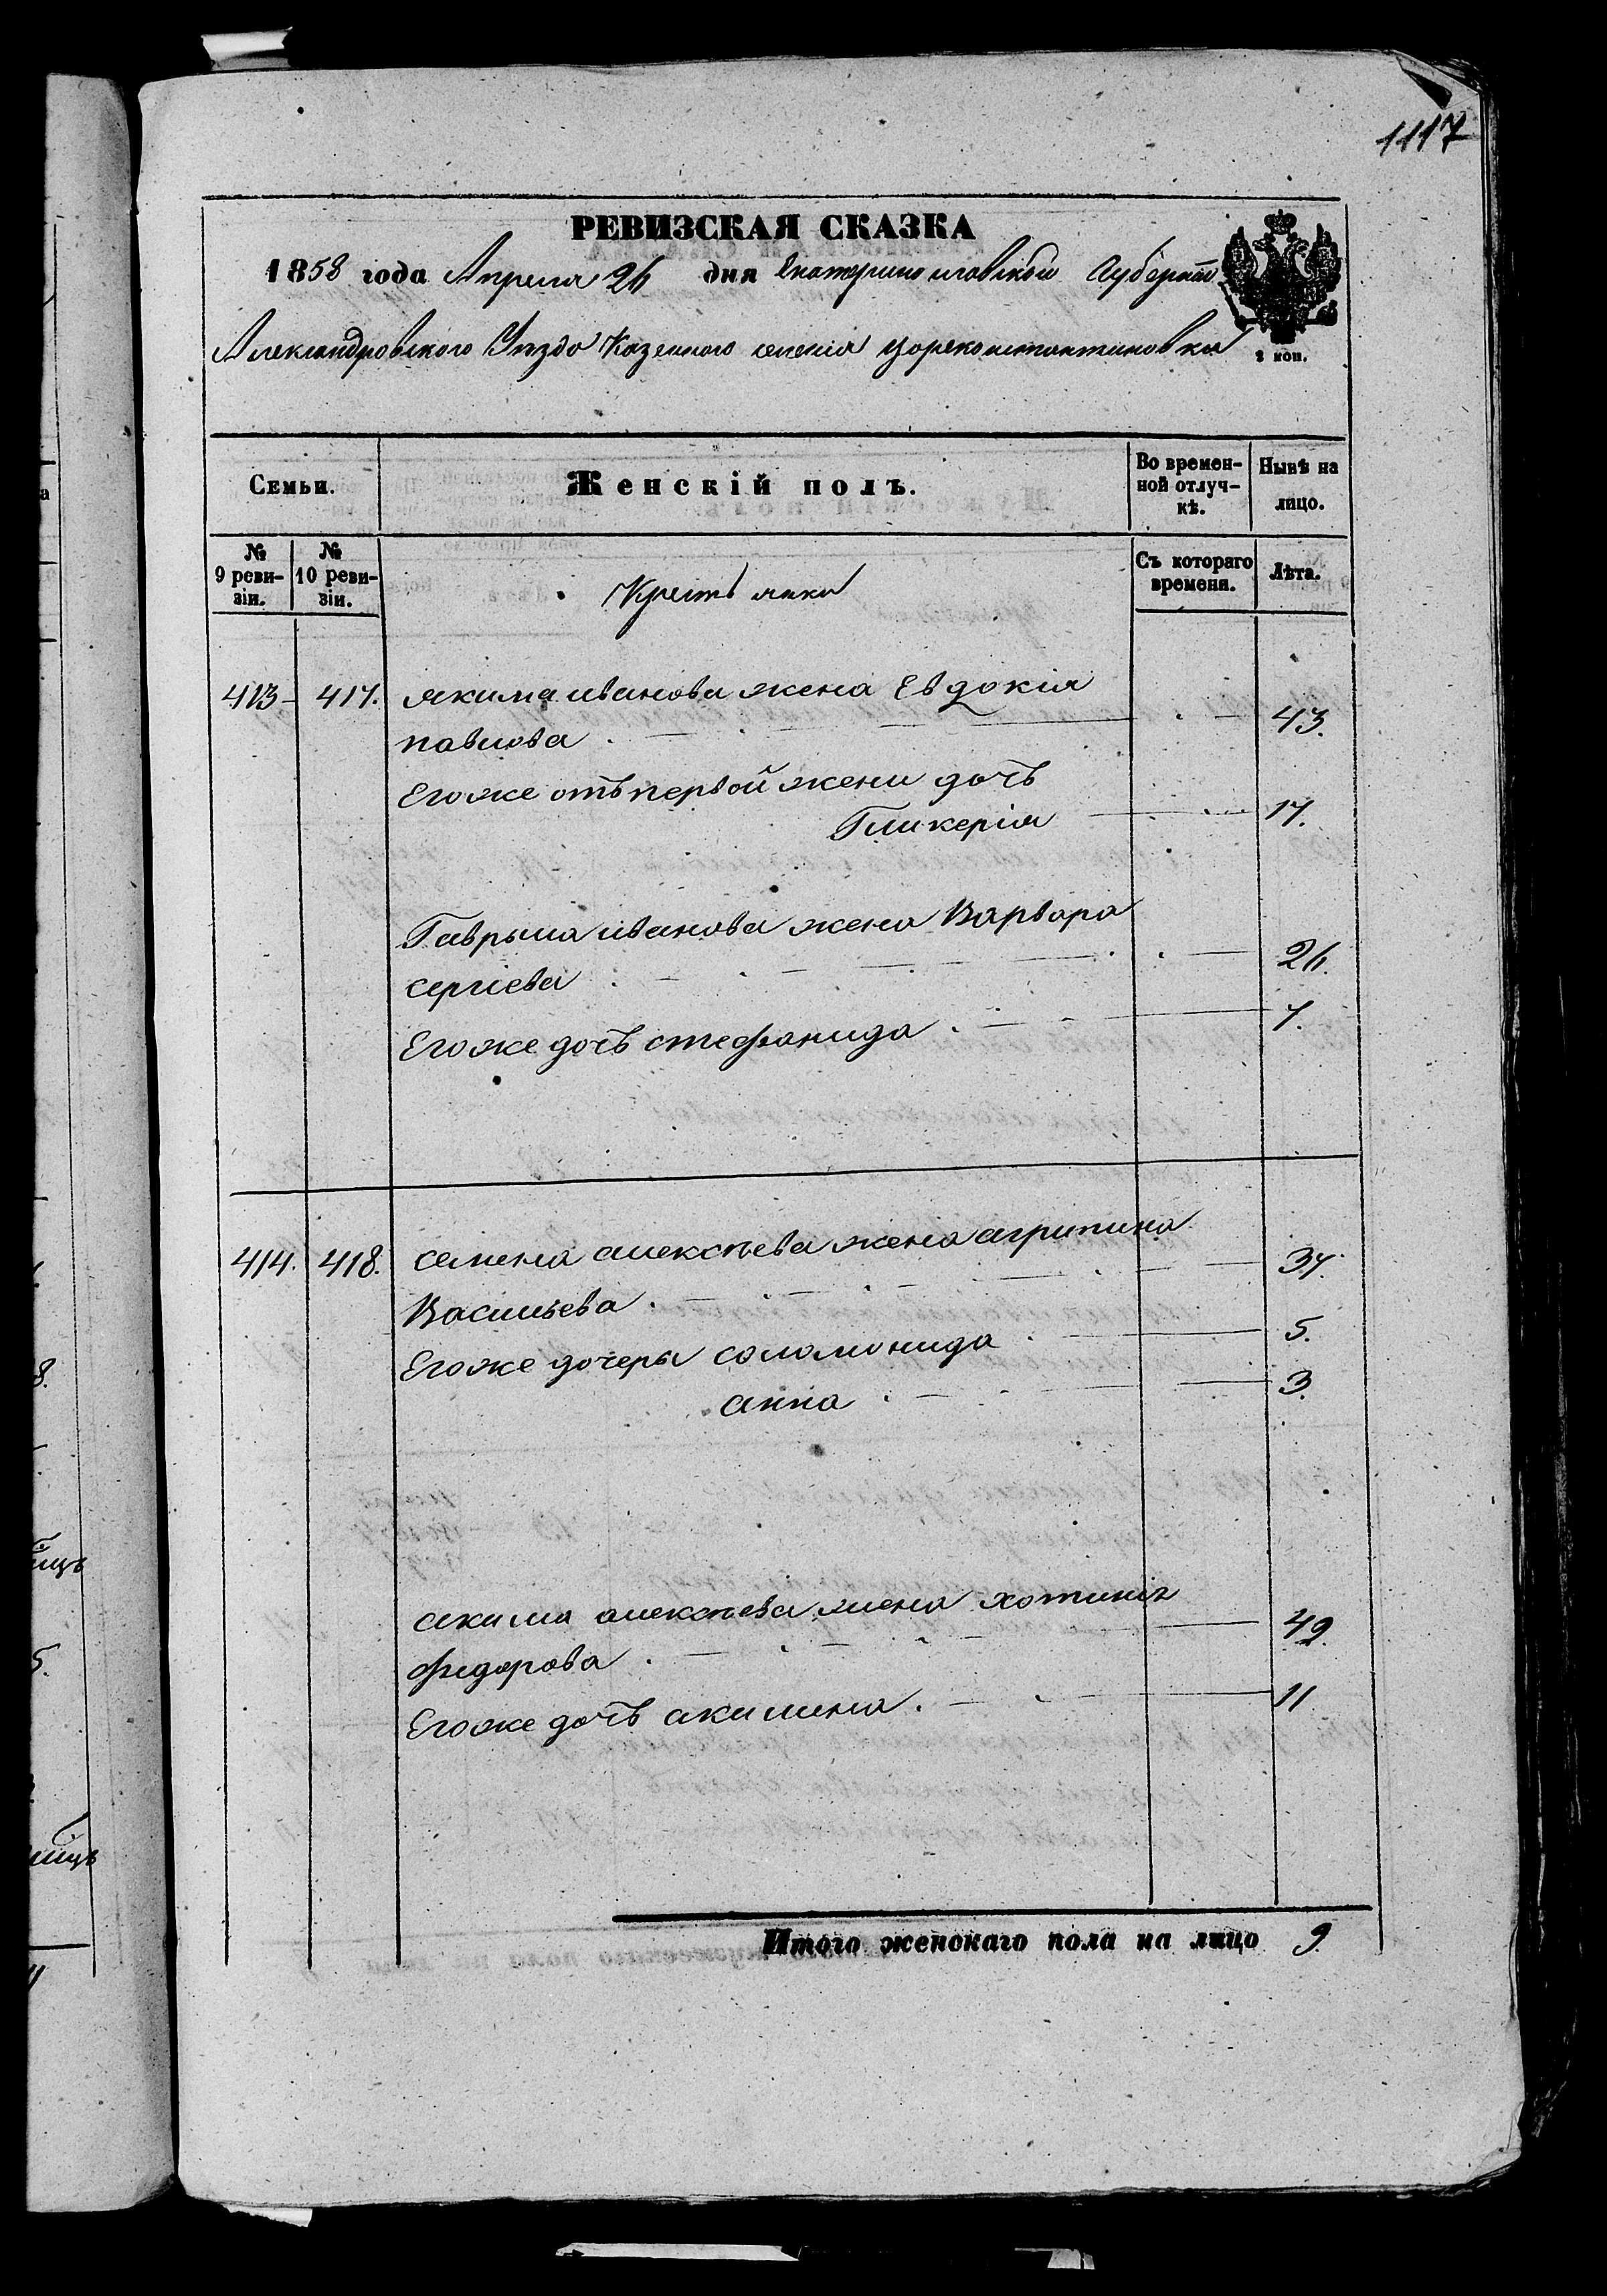 1117
РЕВИЗСКАЯ СКАЗКА
1858 года Апреля 26 дня Екатеринославской Губернии
Александровского Уезда Казенного селенія Цареконстантиновки
2 коп.
Семьи.
Женскій полъ.
Во времен-
ной отлуч-
кѣ.
Нынѣ на
лицо.
№
9 реви-
зіи.
№
10 реви-
зіи.
Крестьянки
Съ котораго
времени.
Лѣта.
413 417. якима иванова жена Евдокія
павлова 43.
Егоже отъ первой жени дочъ
Гликерія 17.
Гаврыла иванова жена Варвара
сергіева 26.
Егоже дочъ стефанида 7.
414. 418. семена алексѣева жена агрипина
Васильева 37.
Егоже дочеры соломонида 5.
анна 3.
акима алексѣева жена хотинія
федорова 49.
Егоже дочъ акилина 11.
Итого женскаго пола на лицо 9.